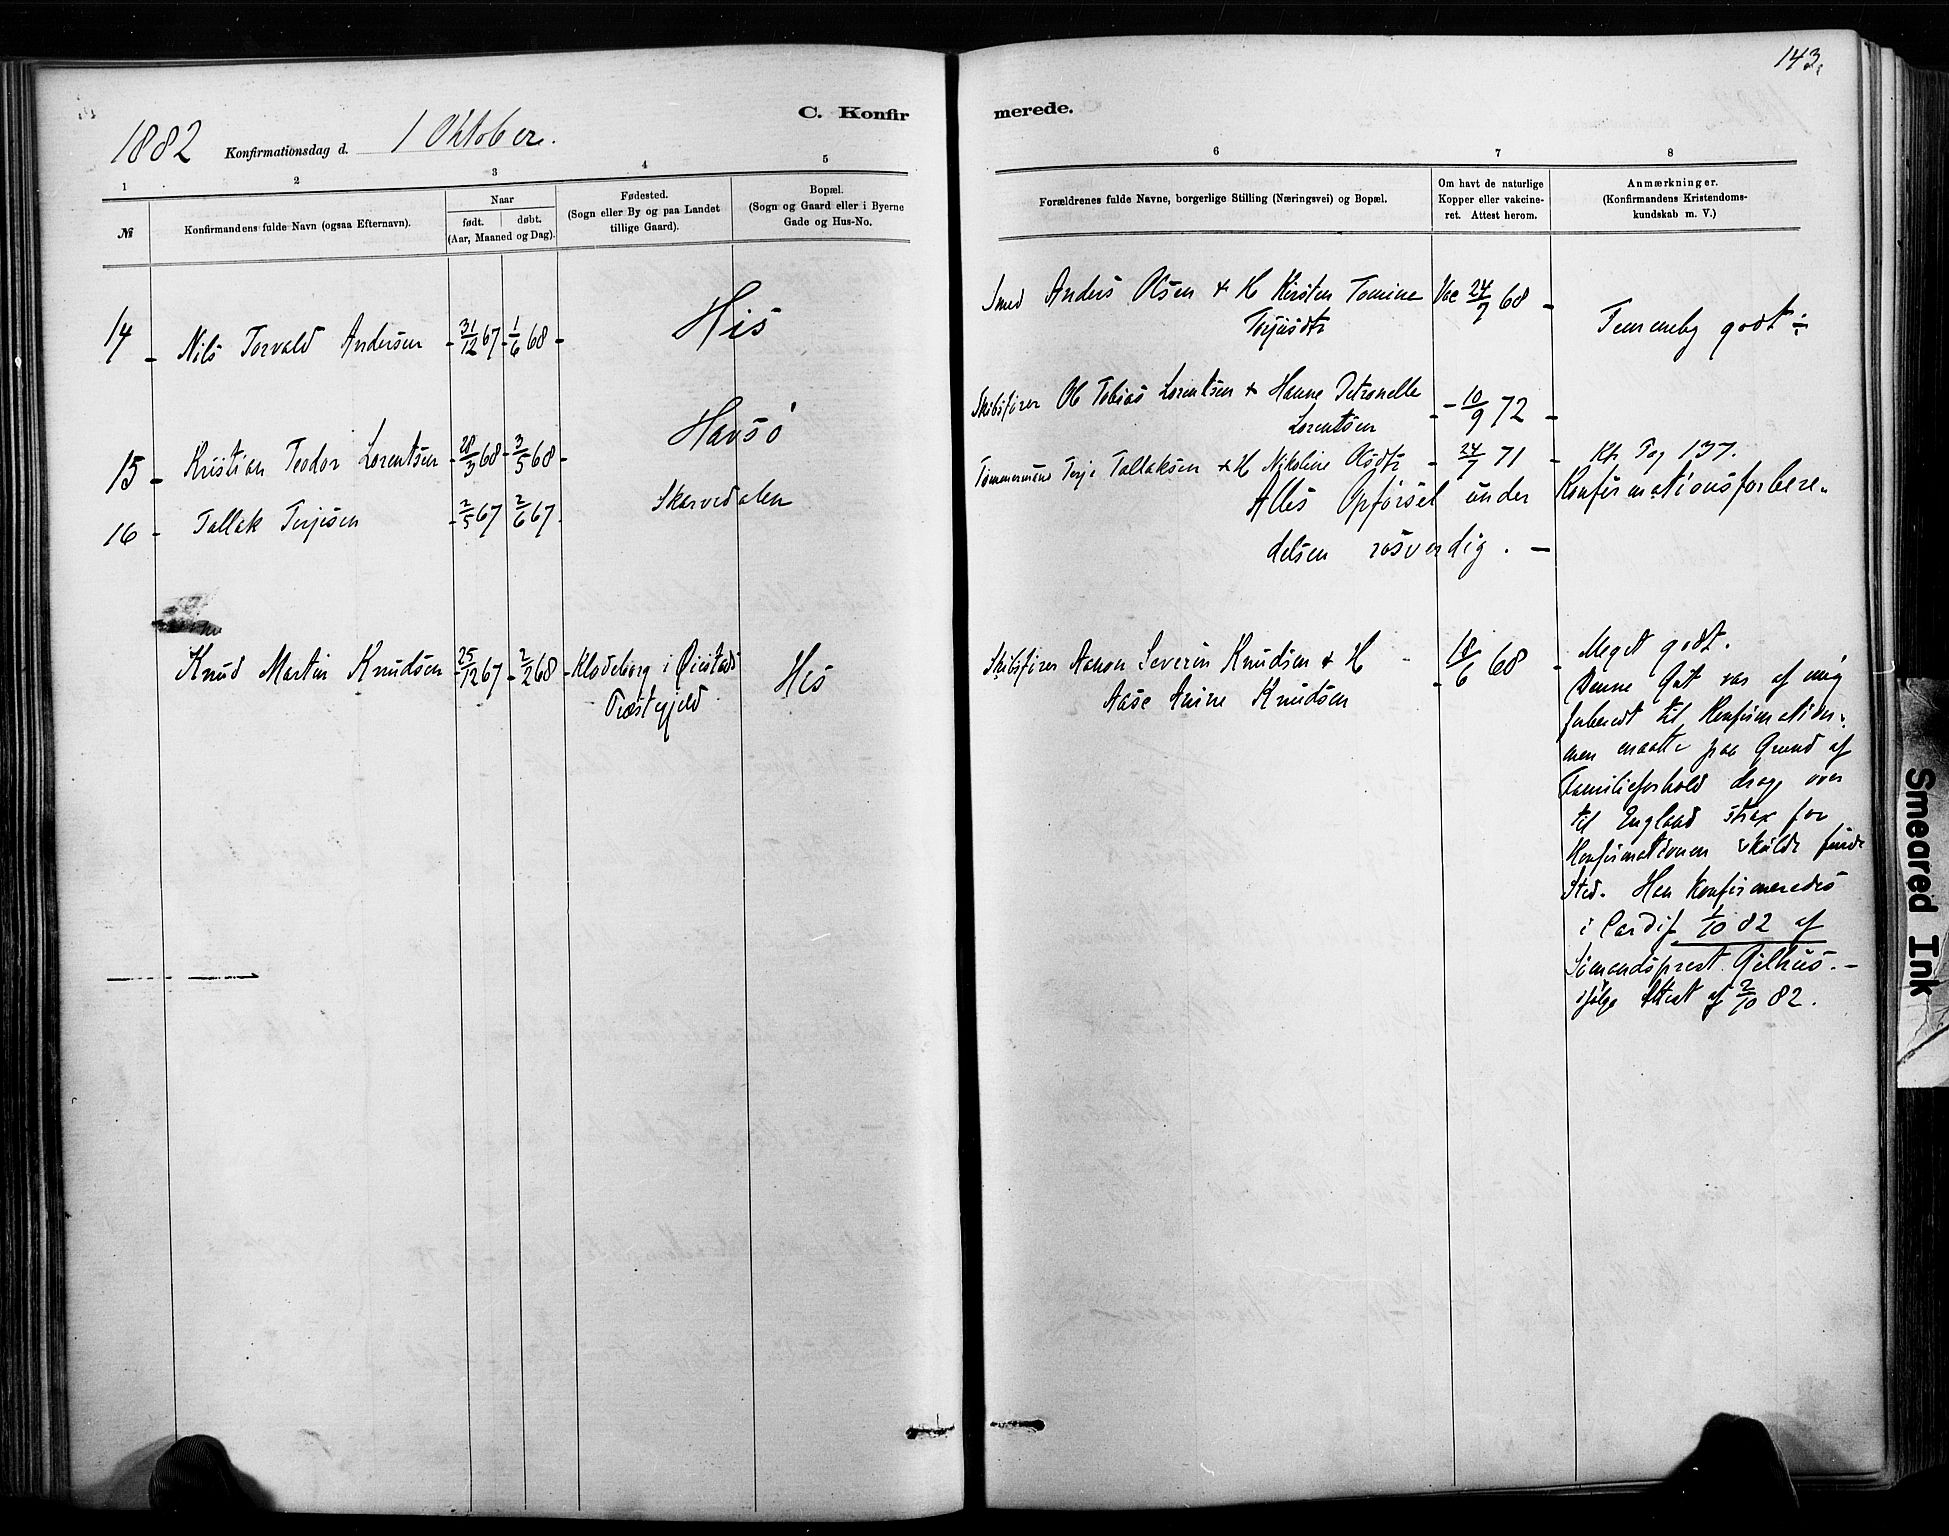 143.
C. Konfirmerede.
1882 Konfirmationsdag d. 1 Oktober.
1 2 3 4 5 6 7 8
№
Konfirmandens fulde Navn (ogsaa Efternavn).
Naar
født. døbt.
(Aar, Maaned og Dag).
Fødested.
(Sogn eller By og paa Landet
tillige Gaard).
Bopæl.
(Sogn og Gaard eller i Byerne
Gade og Hus-No.
Forældrenes fulde Navne, borgerlige Stilling (Næringsvei) og Bopæl.
Om havt de naturlige
Kopper eller vakcine-
ret. Attest herom.
Anmærkninger.
(Konfirmandens Kristendoms-
kundskab m. V.)
14 - Nils Torvald Andersen - 31/12 67 - 1/6 68 - His
Smed Anders Olsen + H Kirsten Tomine Vac 24/9 68 -
Terjesdtr
Temmelig godt ÷
15 - Kristian Teodor Lorentsen - 28/3 68 - 3/5 68 - Havsö
Skibsfører Ole Tobias Lorentsen + Hanne Petronelle
Lorentsen - 10/9 72 -
16 - Tallak Terjesen - 2/5 67 2/6 67 - Skarvedalen
Tømmermand Terje Tallaksen + H Nikoline Olsdtr - 24/7 71 - Kfr Pag 137.
Alles Opførsel under Konfirmationsforbere-
delsen rosverdig. -
Knud Martin Knudsen - 25/12 67 - 2/2 68 - Klodeborg i Øiestads
Præstegjeld
His
Skibsfører Aanon Severin Knudsen + H
Aase Anine Knudsen - 18/6 68 -
Meget godt.
Denne Gut var af mig
forberedt til Konfirmation-
men maatte paa Grund af
Familieforhold drage over
til England strax før
Konfirmationen skulde finde
Sted. Han konfirmeredes
i Cardif 1/10 82 af
Sømandsprest Gjelhus. -
ifølge Attest af 2/10 82.
Smeared Ink